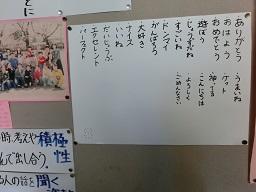 ありがとう
おはよう
おめでとう
遊ぼう
じょうずだね
すごいね
ドンマイ
がんばろう
大好き
ナイス
いいね
だいじょうぶ
エクセレント
パーフェクト
うまいね
ゲット
こんにちは
よろしく
ごめんなさい
とに
時、考えや積極
んで出し合う。性
る人の話を聞く